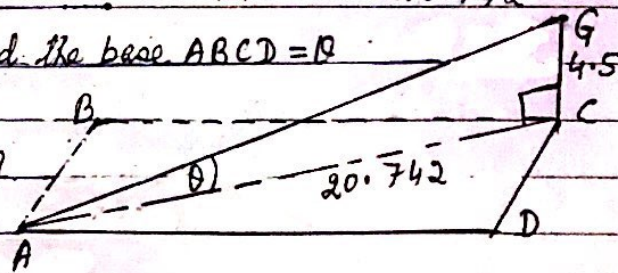 d the base ABCD = θ
G
4.5
B
C
θ
20.742
D
A